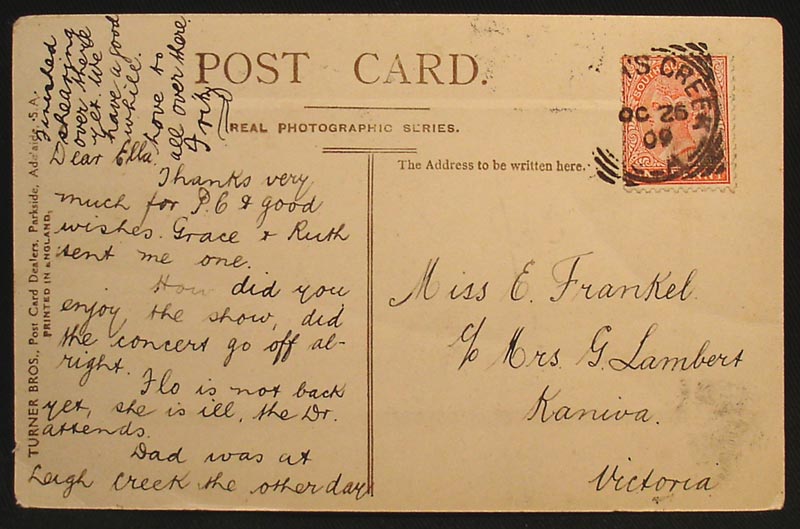 POST CARD.
REAL PHOTOGRAPHIC SERIES.
The Address to be written here.
TURNER BROS., Post Card Dealers, Parkside, Adelaide, S.A.
PRINTED IN ENGLAND.
Dear Ella
Thanks very
much for P.C & good
wishes. Grace & Ruth
sent me one.
How did you
enjoy the show, did
the concert go off al-
right.
Flo is not back
yet, she is ill, the Dr.
attends.
Dad was at
Leigh Creek the other day
finished
shearing
over there
yet. We
have a good
while.
Love to
all over there
Miss E. Frankel.
c/o Mrs. G. Lambert
Kaniva.
Victoria
SOUTH
'S CREEK
OC 26
09